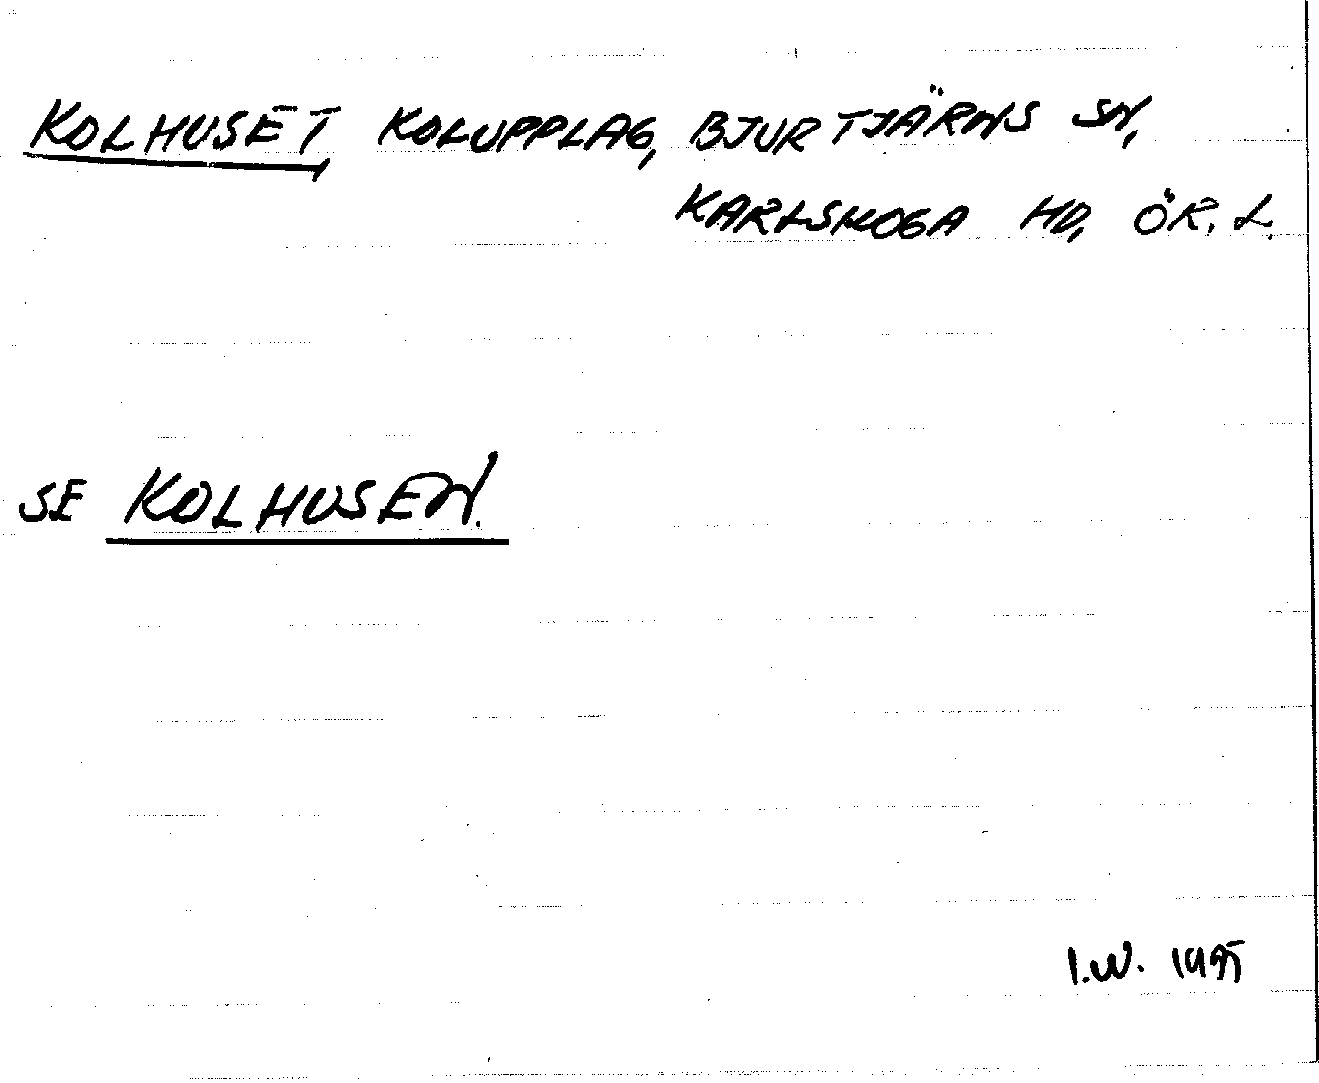 KOLHUSET, KOLUPPLAG, BJURTJÄRNS SN,
KARLSKOGA HD, ÖR. L.
SE KOLHUSEN.
I.W. 1995